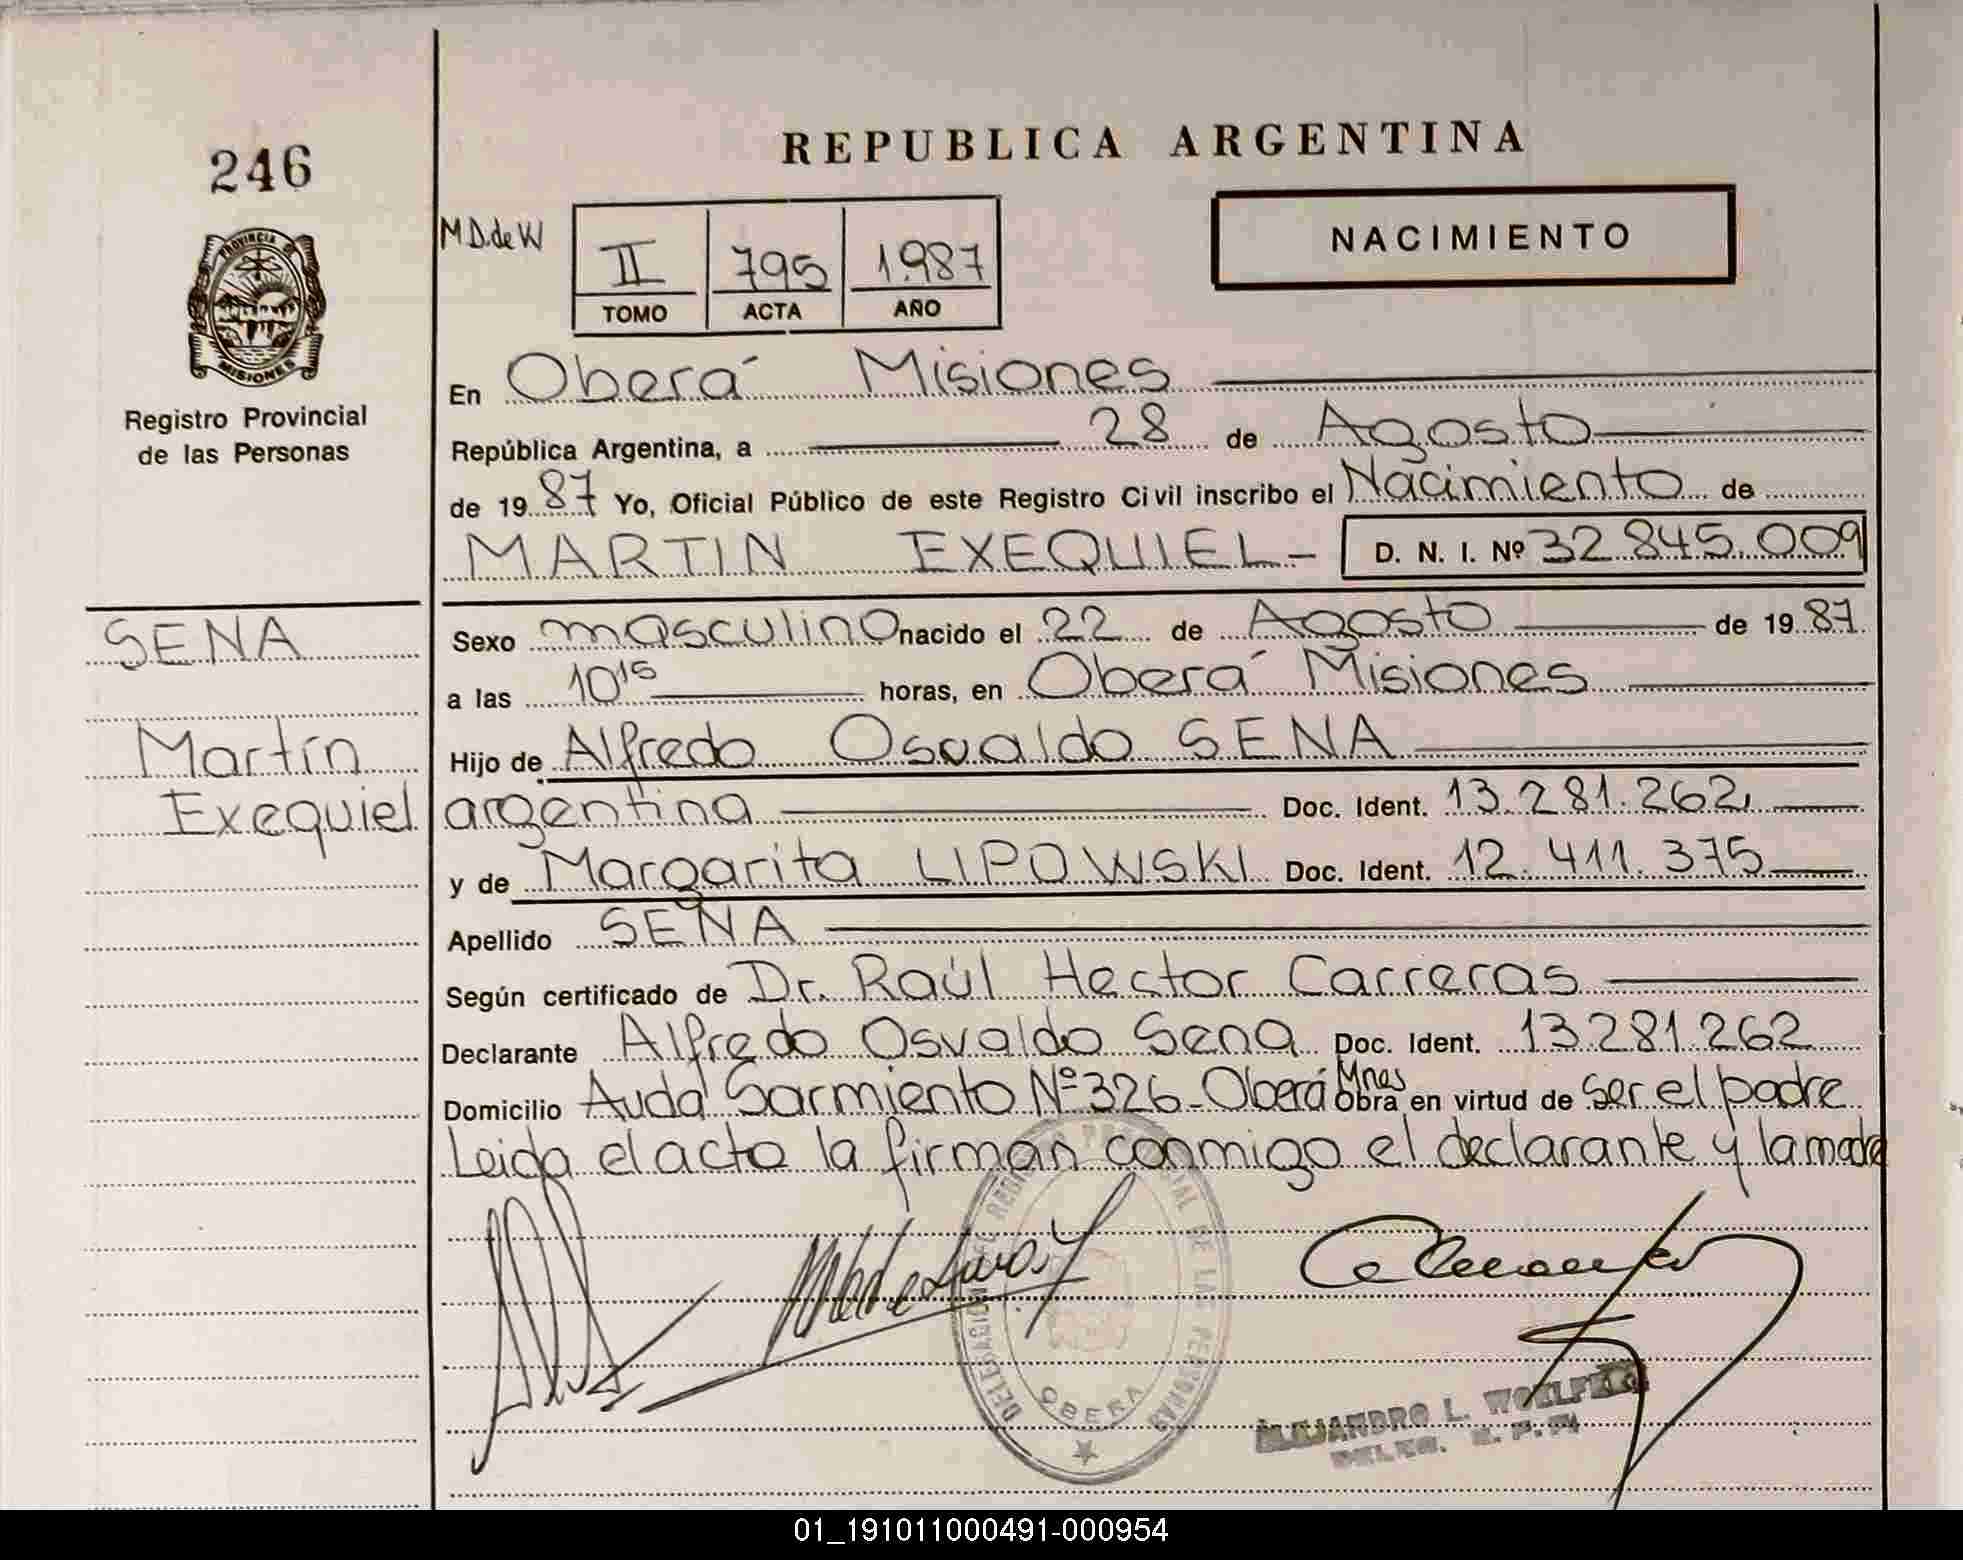 246
PROVINCIA DE
MISIONES
Registro Provincial
de las Personas
REPUBLICA ARGENTINA
M D. de W
II 795 1.987
TOMO ACTA AÑO
NACIMIENTO
En Oberá Misiones
República Argentina, a 28 de Agosto
de 19 87 Yo, Oficial Público de este Registro Civil inscribo el Nacimiento de
MARTIN EXEQUIEL - D. N. I. Nº 32.845.009
SENA
Martín
Exequiel
Sexo masculino nacido el 22 de Agosto de 19 87
a las 10¹⁵ horas, en Oberá Misiones
Hijo de Alfredo Osvaldo SENA
argentina Doc. Ident. 13.281.262
y de Margarita LIPOWSKI Doc. Ident. 12.411.375
Apellido SENA
Según certificado de Dr. Raúl Hector Carreras
Declarante Alfredo Osvaldo Sena Doc. Ident. 13.281.262
Domicilio Avda Sarmiento Nº 326 - Oberá Mnes Obra en virtud de ser el padre
Leida el acta la firman conmigo el declarante y la madre
DELEGACION REGISTRO PROVINCIAL DE LAS PERSONAS
OBERA
ALEJANDRO L.
DELEG. R. P. P.
01_191011000491-000954